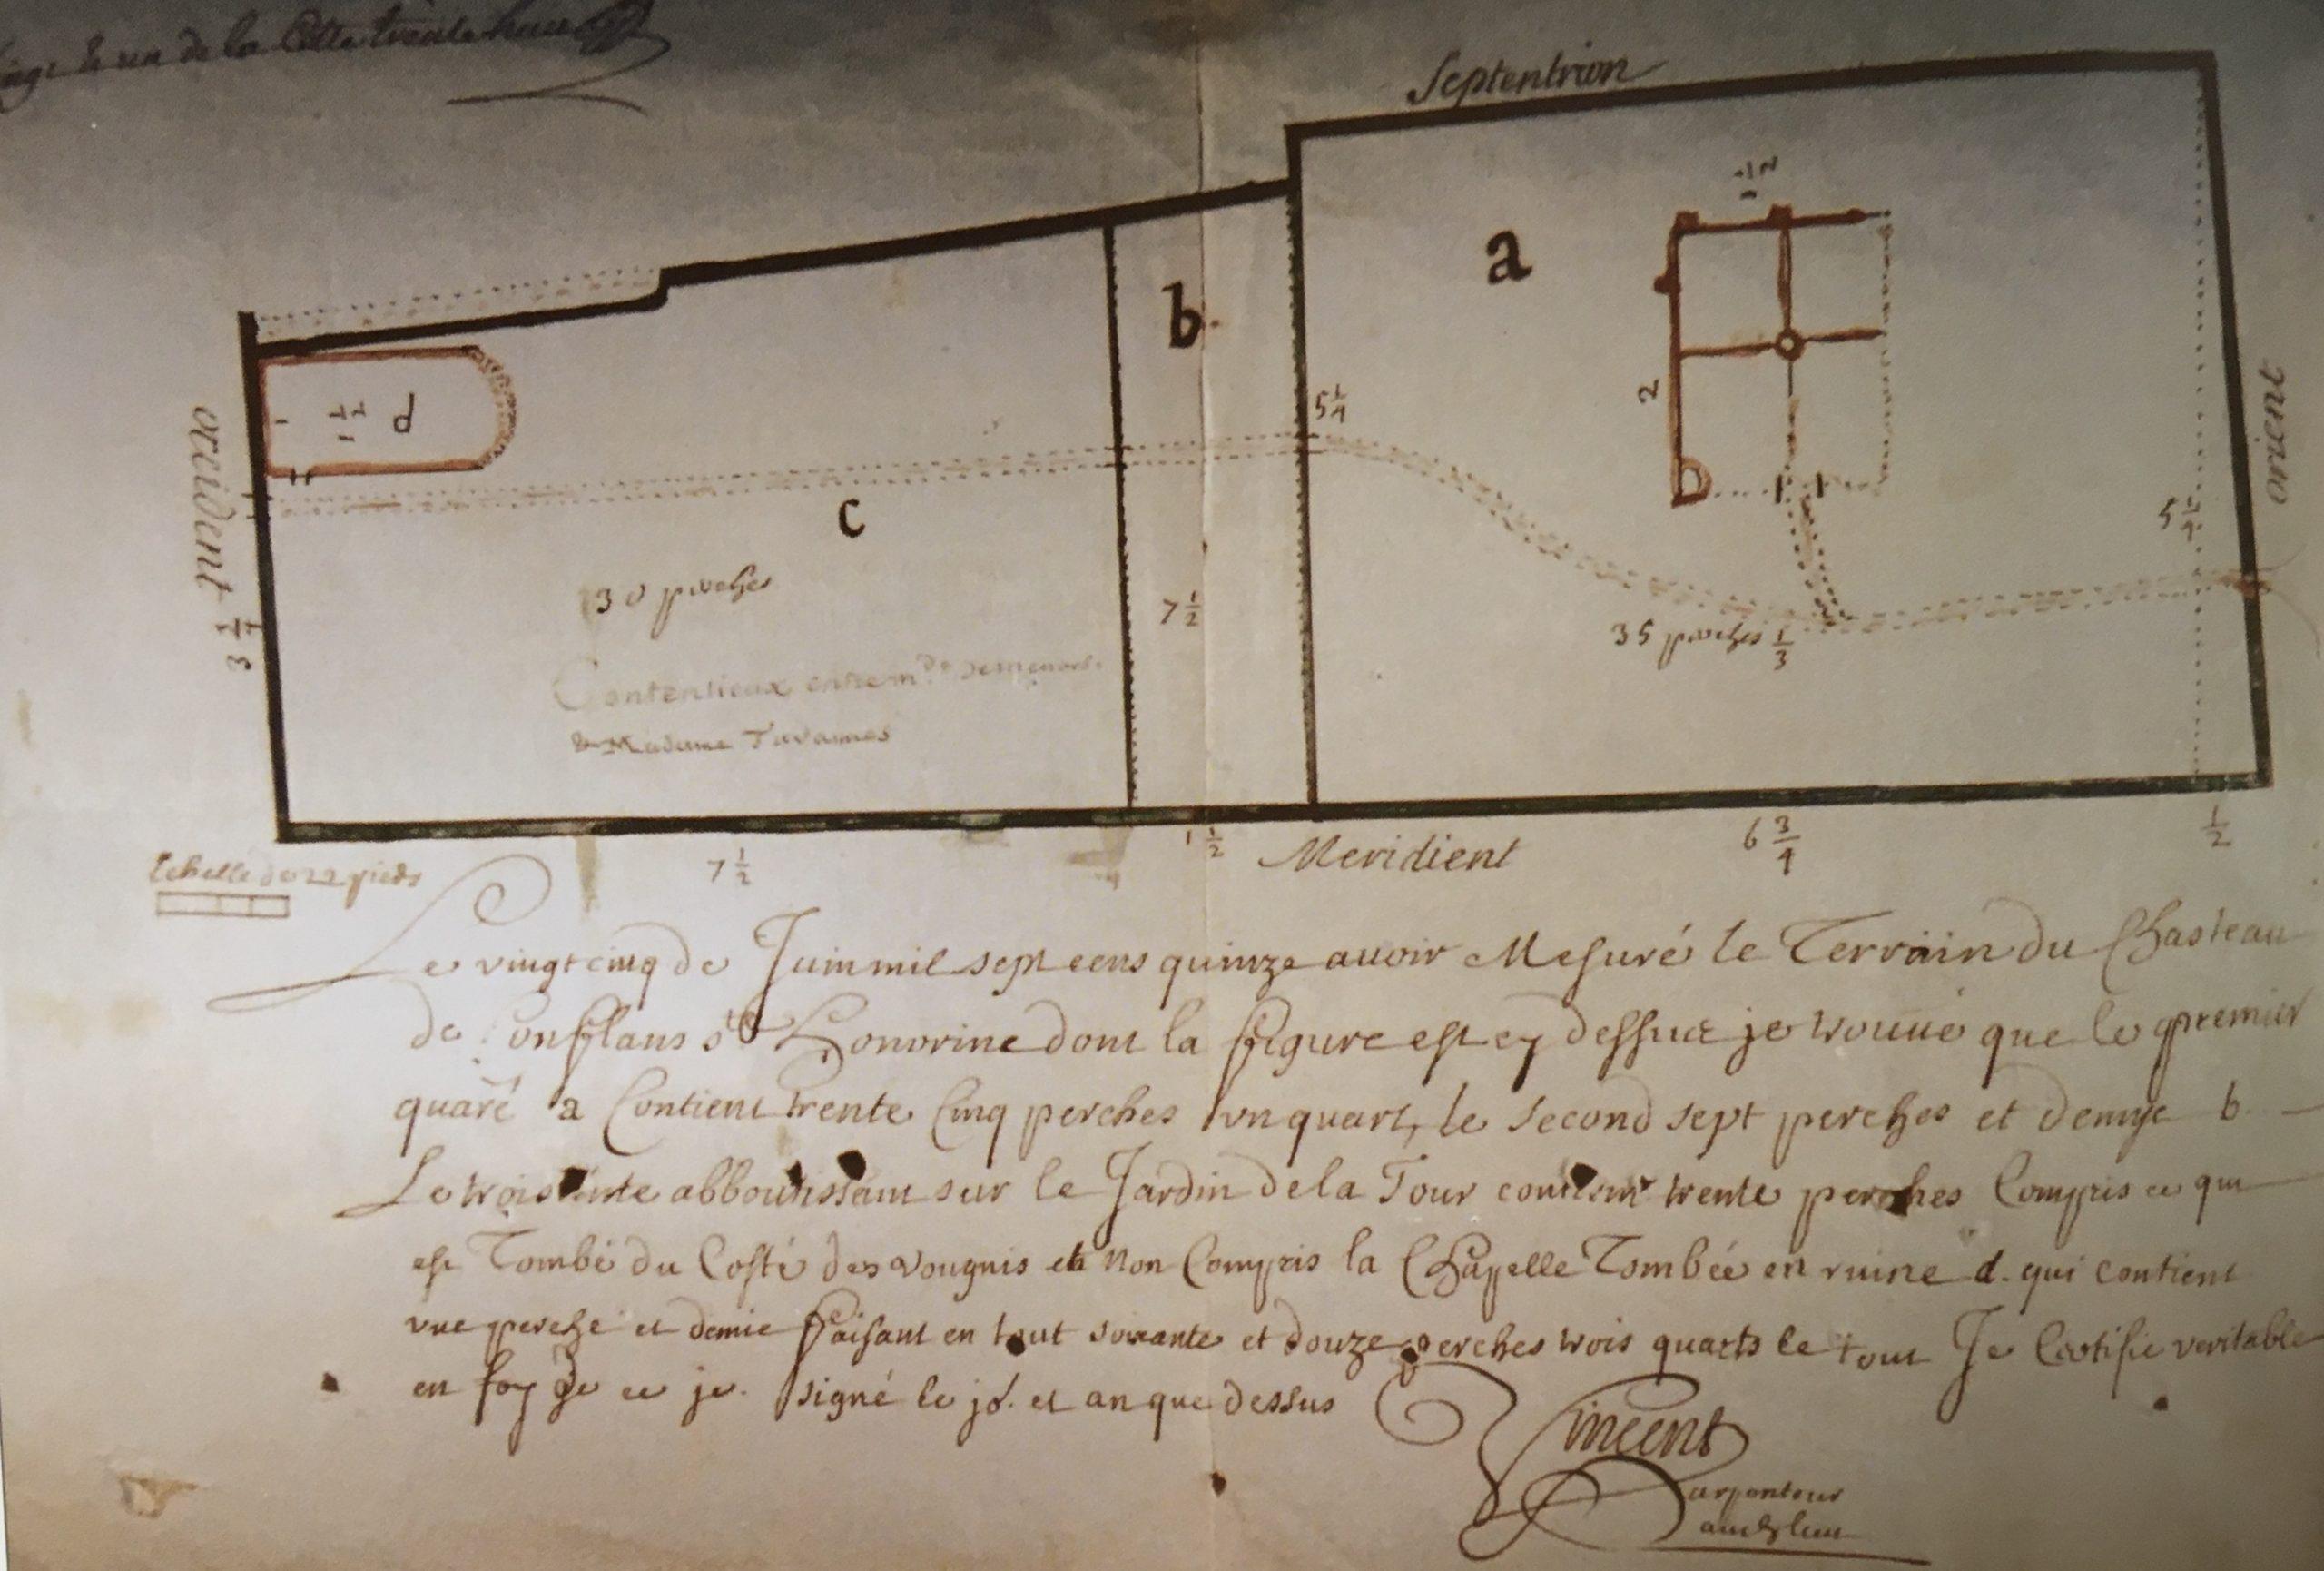 de la Cotte treize
Septentrion
1 1/2
a
b
5 1/4
2
1 1/2 d
occident
3 1/4
c
30 perches
7 1/2
35 perches 1/3
5 1/4
orient
Contentieux entre md
& Madame Tavannes
Echelle de 22 pieds
7 1/2
1 1/2
Meridient
6 3/4
1/2
Le vingt cinq de Juin mil sept cens quinze auoir Mesuré le Terrain du Chasteau
de Conflans ste Honorine dont la figure est cy dessus je trouué que le premier
quaré a Contient trente Cinq perches un quart, le second sept perches et demye b
Le troisieme abboutissant sur le Jardin de la Tour contient trente perches Compris ce qui
est Tombé du Costé des et Non Compris la Chapelle Tombée en ruine d. qui contient
vne perche et demie faisant en tout soixante et douze perches trois quarts le tout Je Certifie veritable
en foy de ce je. signé le jo.r et an que dessus
Vincent
arpenteur